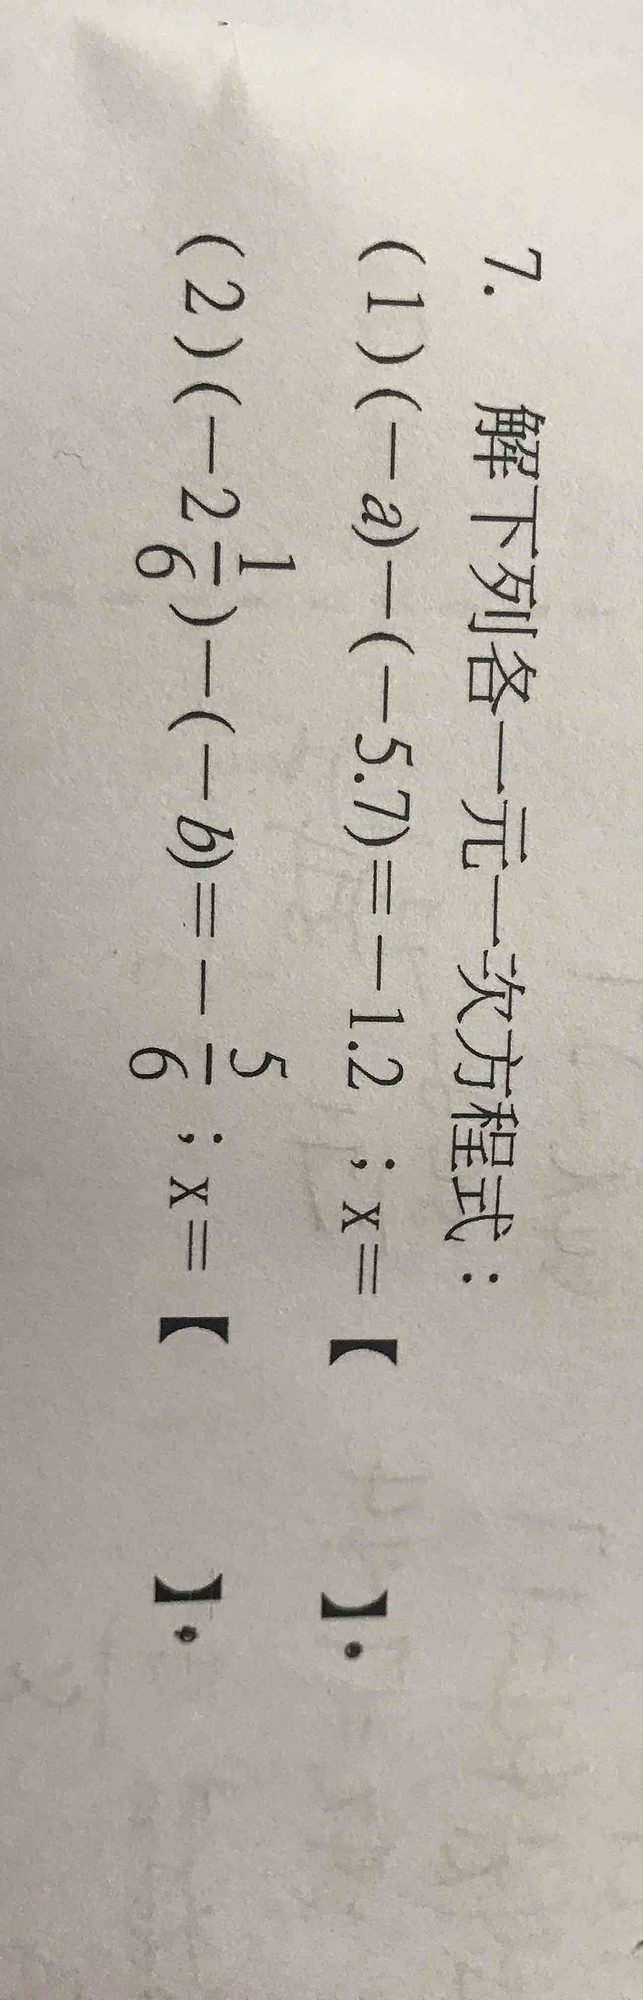 7. 解下列各一元一次方程式：
(1)(－a)－(－5.7)=－1.2；x=【 】.
(2)(－2 1/6)－(－b)=－5/6；x=【 】.